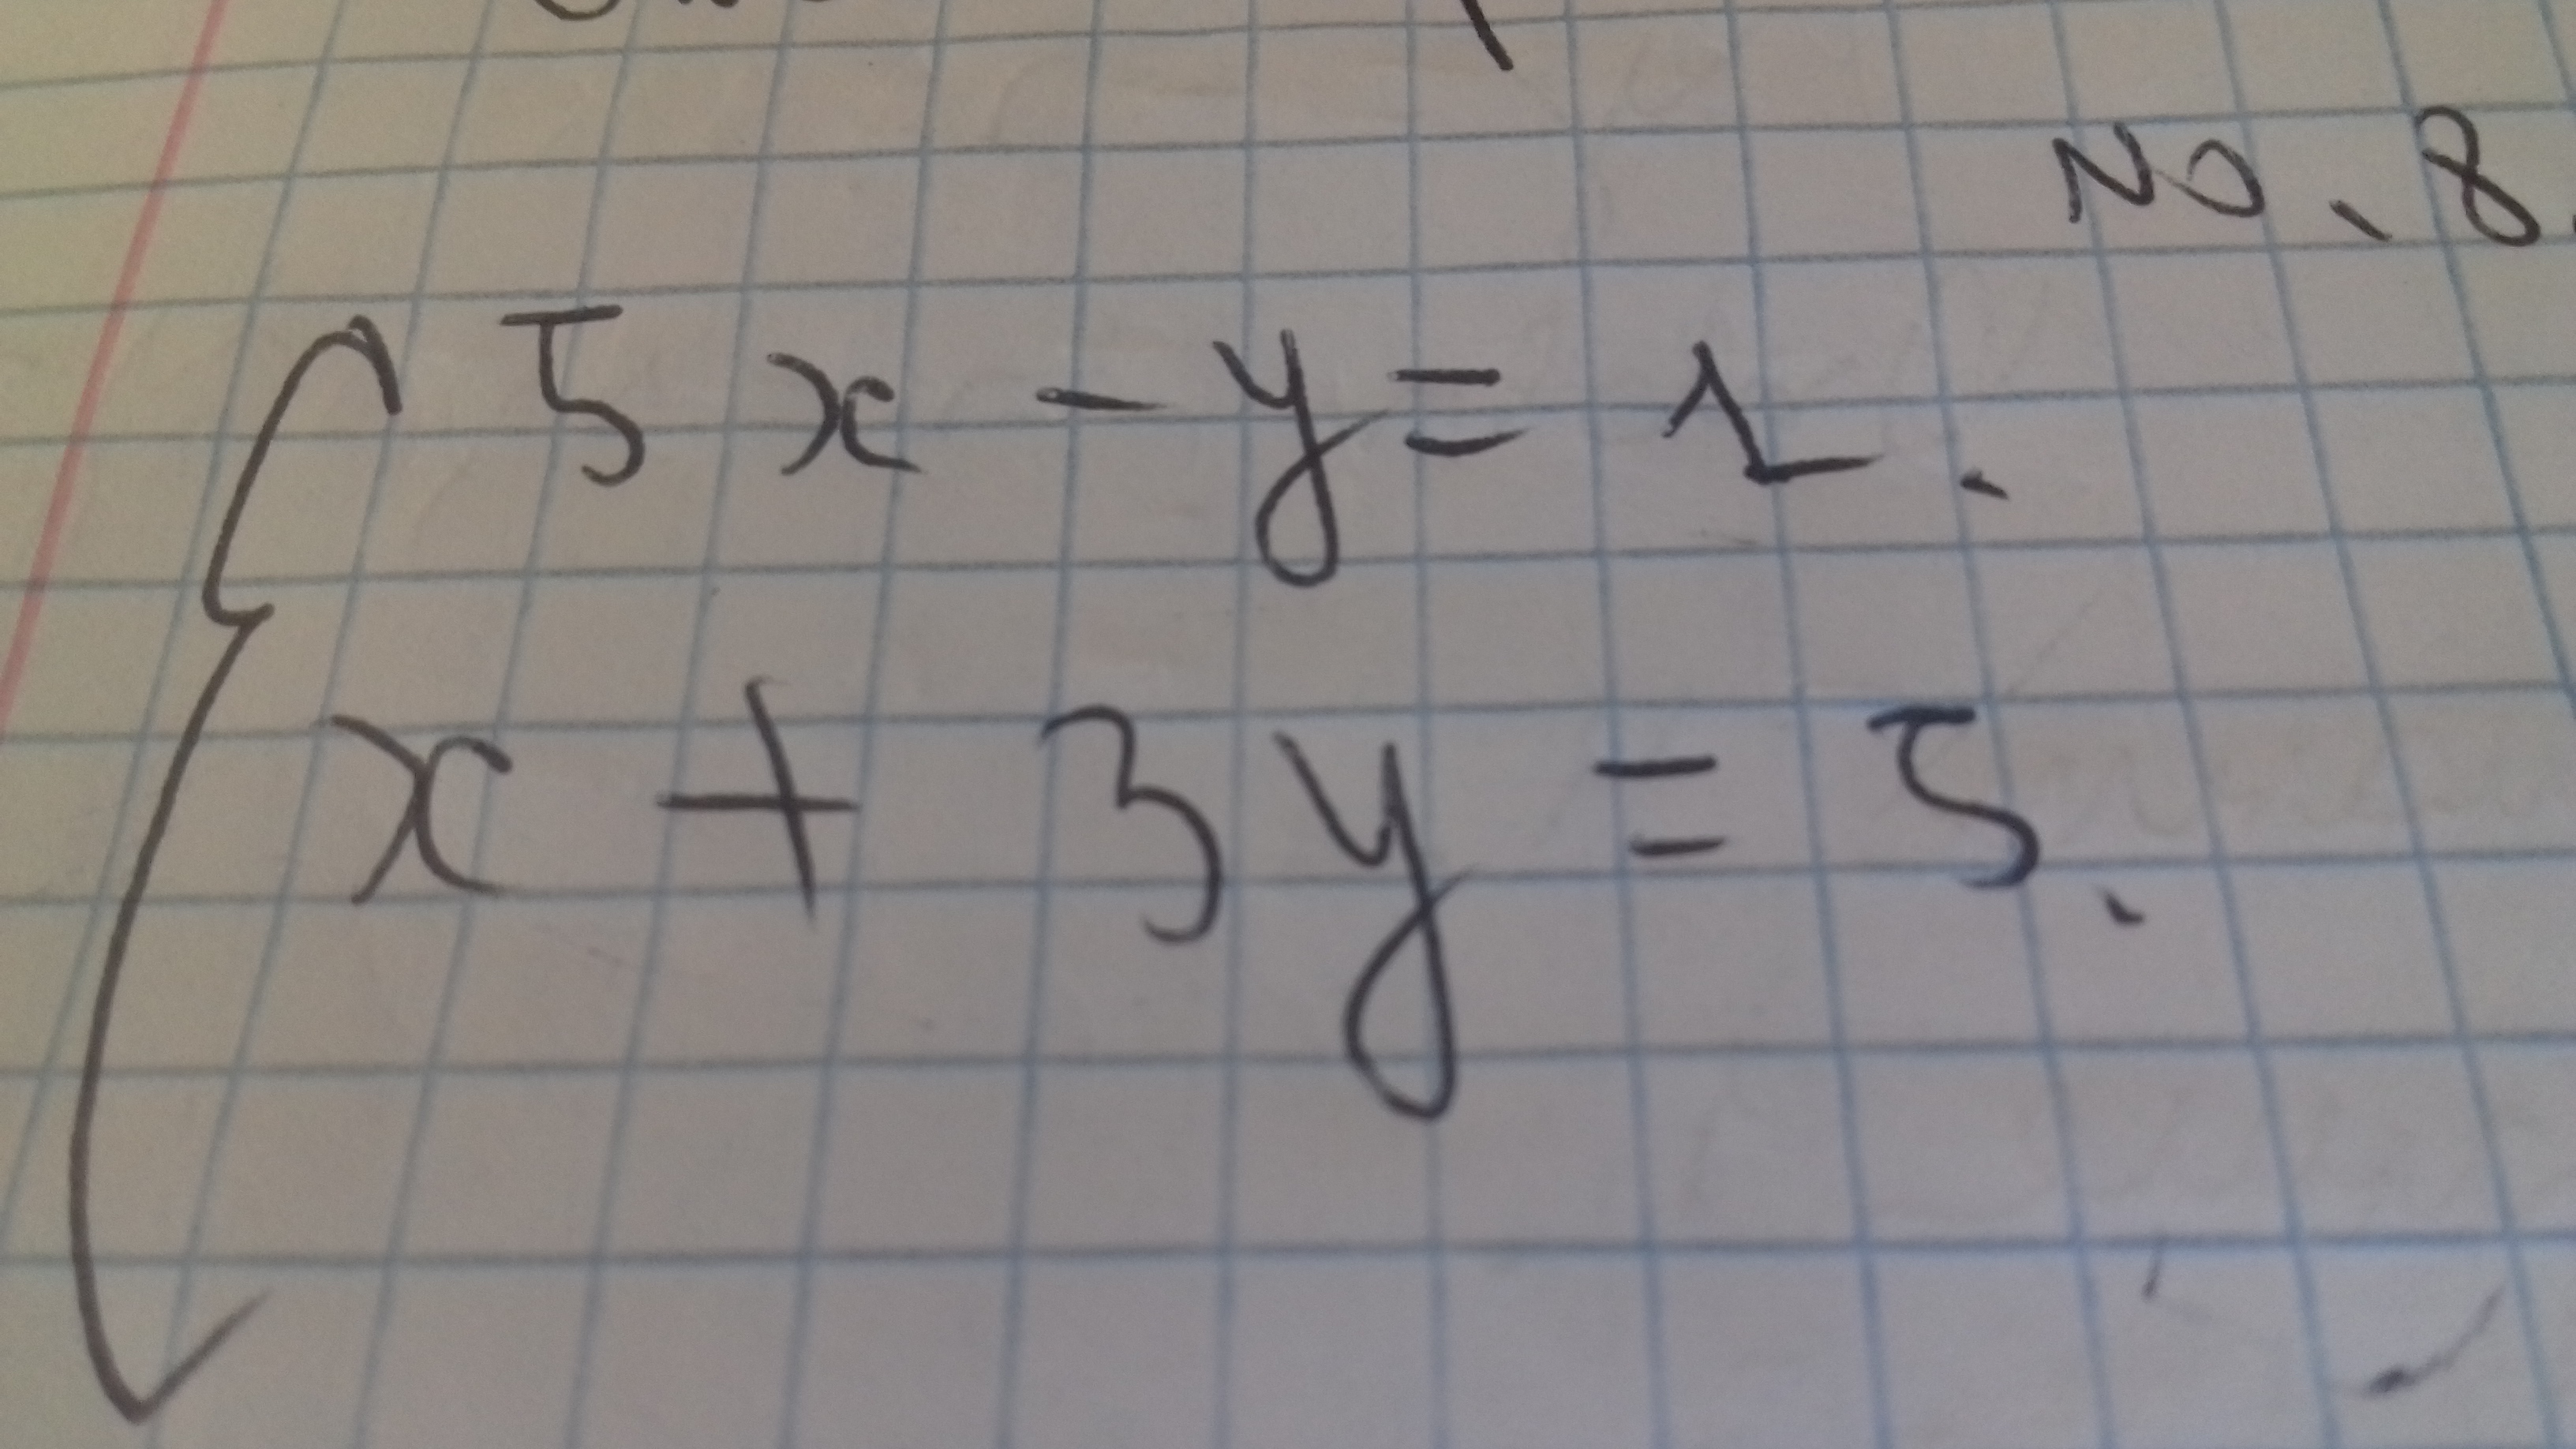 No. 8.
5x - y = 1.
x + 3y = 5.